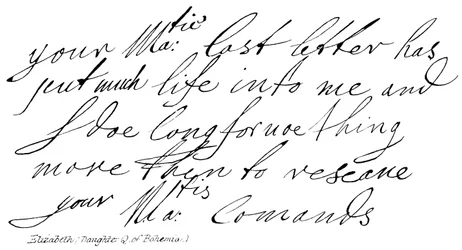 your Ma:ties last letter has
put much life into me and
I doe long for noe thing
more then to reseaue
your Ma:tis Comands
Elizabeth, (Daughter Q. of Bohemia.)